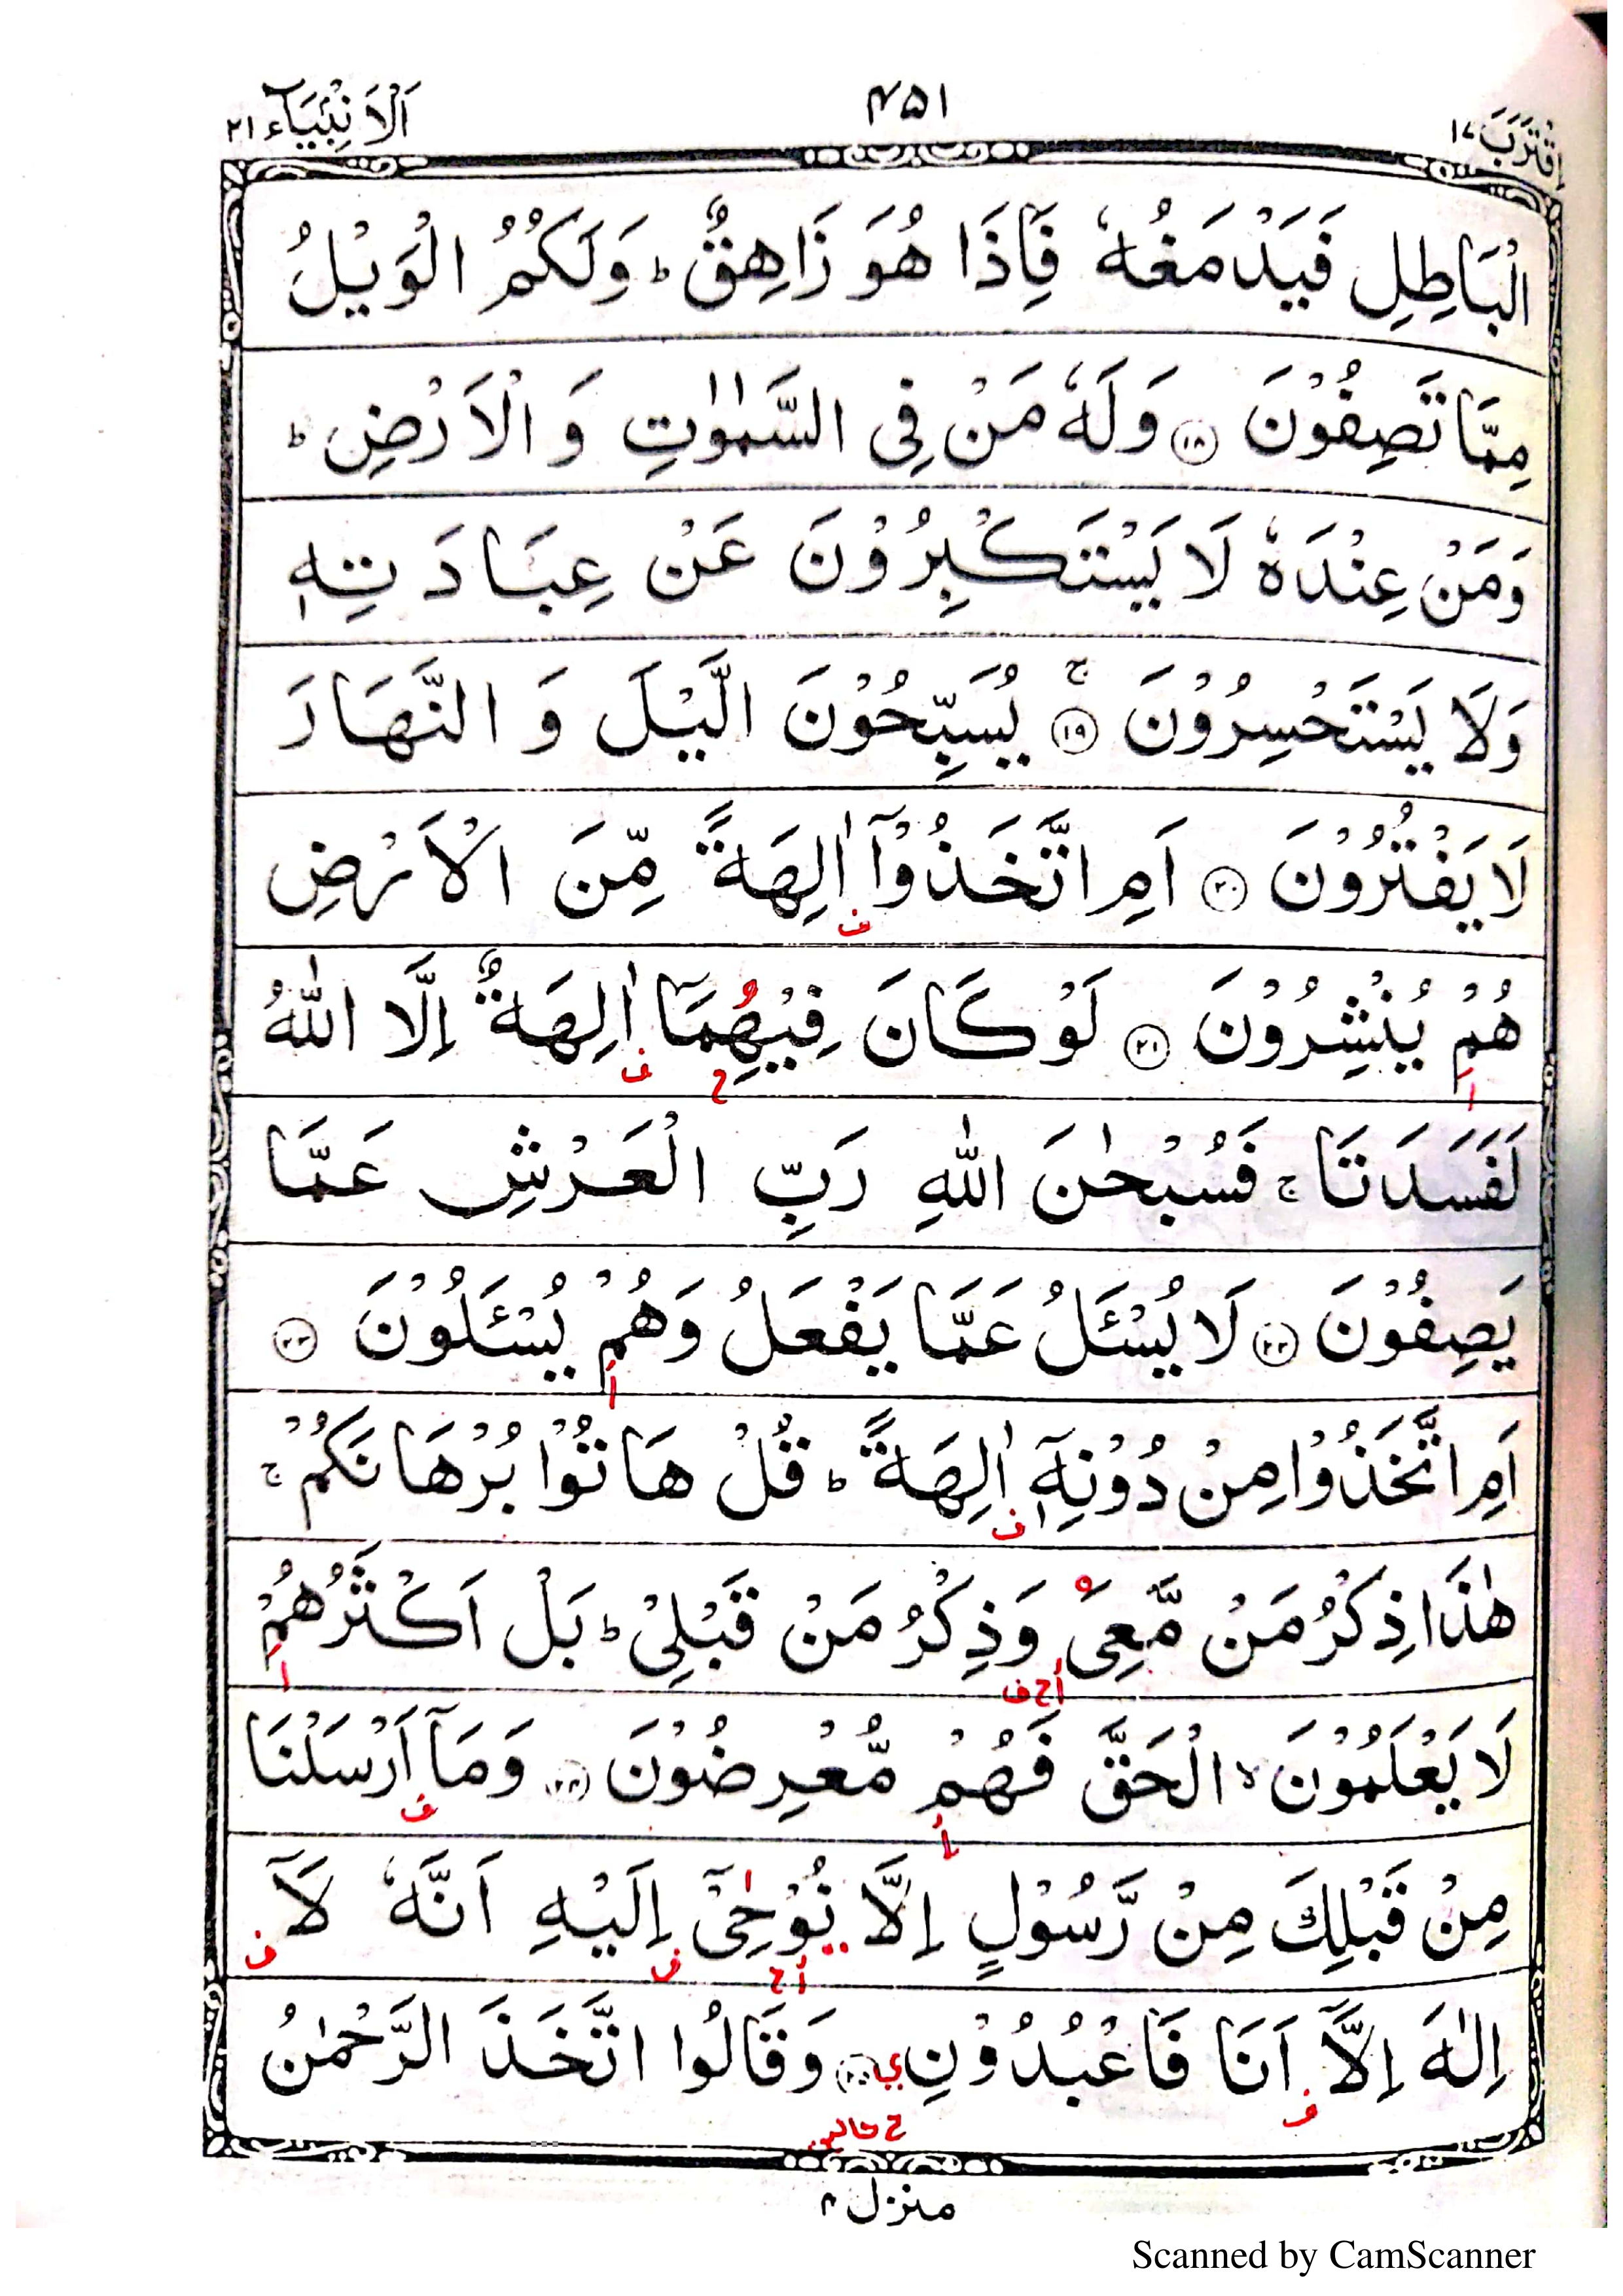 اِقْتَرَبَ ١٧
٤٥١
اَلْاَنْۢبِيَآء ٢١
الْبَاطِلِ فَيَدْمَغُهٗ فَاِذَا هُوَ زَاهِقٌ ؕ وَلَكُمُ الْوَيْلُ
مِمَّا تَصِفُوْنَ ﴿١٨﴾ وَلَهٗ مَنْ فِى السَّمٰوٰتِ وَ الْاَرْضِ ؕ
وَمَنْ عِنْدَهٗ لَا يَسْتَكْبِرُوْنَ عَنْ عِبَادَتِهٖ
وَلَا يَسْتَحْسِرُوْنَ ﴿١٩﴾ ۚ يُسَبِّحُوْنَ الَّيْلَ وَ النَّهَارَ
لَا يَفْتُرُوْنَ ﴿٢٠﴾ اَمِ اتَّخَذُوْۤا اٰلِهَةً مِّنَ الْاَرْضِ
ف
هُمْ يُنْشِرُوْنَ ﴿٢١﴾ لَوْ كَانَ فِيْهِمَاۤ اٰلِهَةٌ اِلَّا اللّٰهُ
ا ح ف
لَفَسَدَتَا ۚ فَسُبْحٰنَ اللّٰهِ رَبِّ الْعَرْشِ عَمَّا
يَصِفُوْنَ ﴿٢٢﴾ لَا يُسْـَٔلُ عَمَّا يَفْعَلُ وَهُمْ يُسْـَٔلُوْنَ ﴿٢٣﴾
أ
اَمِ اتَّخَذُوْا مِنْ دُوْنِهٖۤ اٰلِهَةً ؕ قُلْ هَاتُوْا بُرْهَانَكُمْ ۚ
ف
هٰذَا ذِكْرُ مَنْ مَّعِىَ وَذِكْرُ مَنْ قَبْلِىْ ؕ بَلْ اَكْثَرُهُمْ
أ ح ف ا
لَا يَعْلَمُوْنَ ۙ الْحَقَّ فَهُمْ مُّعْرِضُوْنَ ﴿٢٤﴾ وَمَاۤ اَرْسَلْنَا
أ ف
مِنْ قَبْلِكَ مِنْ رَّسُوْلٍ اِلَّا نُوْحِىْۤ اِلَيْهِ اَنَّهٗ لَاۤ
أ ح ف ف
اِلٰهَ اِلَّاۤ اَنَا فَاعْبُدُوْنِ ي ﴿٢٥﴾ وَقَالُوا اتَّخَذَ الرَّحْمٰنُ
ف ح
منزل ٤
Scanned by CamScanner